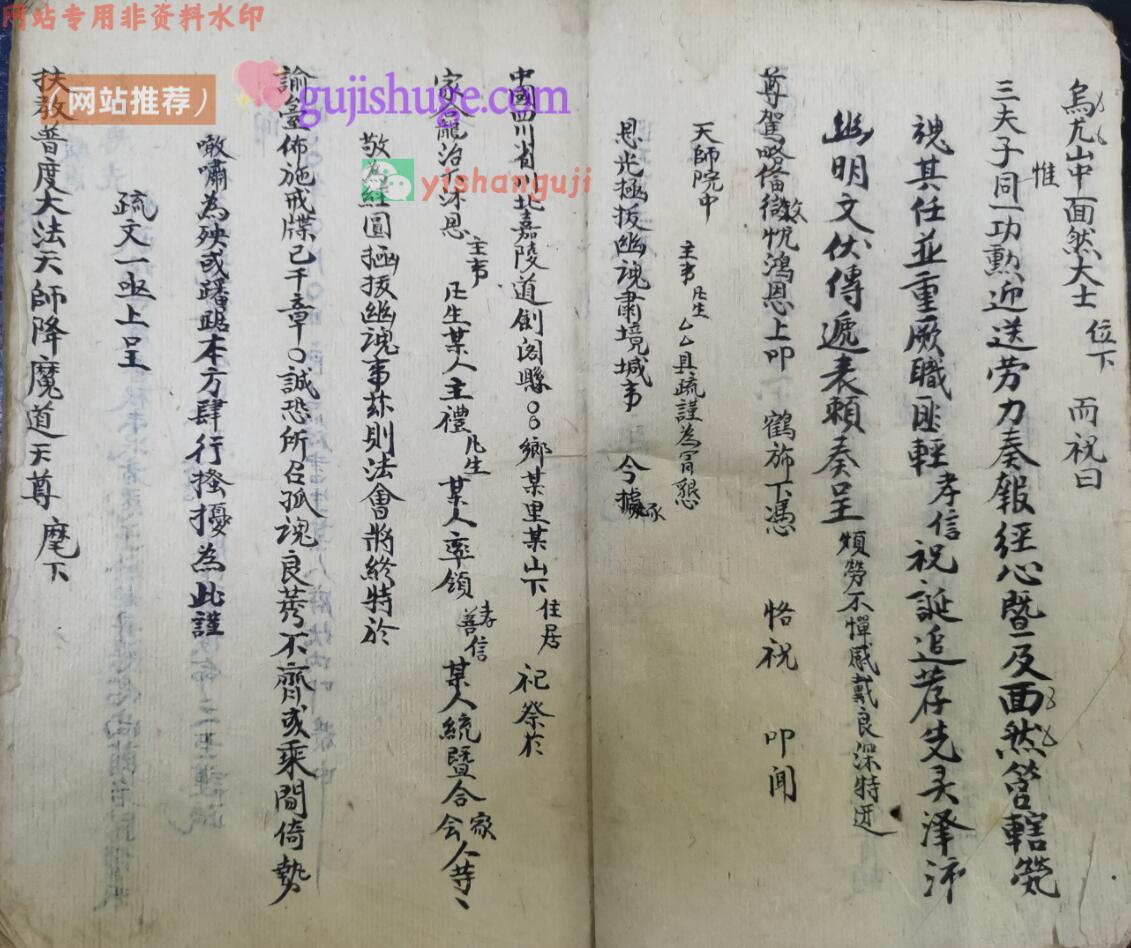 网站专用非资料水印
（网站推荐）
gujishuge.com
yishanguji
烏尤山中面然大士 位下 而祝曰
惟
三夫子同一功勲迎送劳力奏報經心暨及面然管轄煢
魂其任並重厥職匪輕 孝信 祝誕追荐先灵澤沛
幽明文伏傳遞表賴奏呈 煩劳不憚感戴良深特迓
尊駕畧俻微忱鴻恩上叩 鶴斾下憑 恪祝 叩闻
天師院中 主事凡生 厶厶具疏謹為宥懇
恩光拯拔幽魂肅境城事 今據
中國四川省川北嘉陵道劍阁縣〇〇鄉某里某山下 住居 祀祭於
家龕治下沐恩 主事 凡生某人主禮 凡生 某人率領 孝善信 某人統暨合家会人等
敬為經圓拯拔幽魂事兹則法會將終特於
諭臺佈施戒牒已千章〇誠恐所召孤魂良莠不齊或乘間倚勢
噉嘯為殃或躍踞本方肆行搔擾為此謹
疏文一函上呈
扶教普度大法天師降魔道天尊 麾下